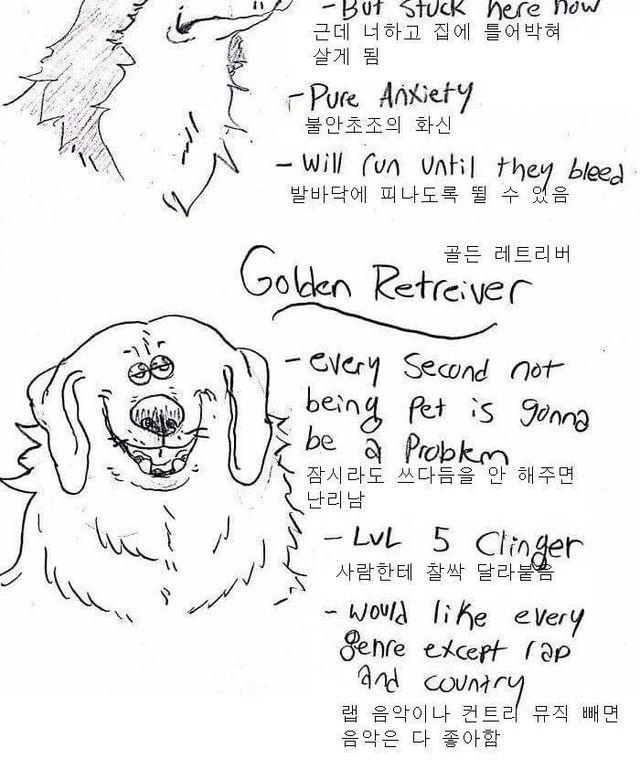 - But stuck here now
근데 너하고 집에 틀어박혀
살게 됨
- Pure Anxiety
불안초조의 화신
- Will run until they bleed
발바닥에 피나도록 뛸 수 있음
골든 레트리버
Golden Retreiver
- every second not
being pet is gonna
be a problem
잠시라도 쓰다듬을 안 해주면
난리남
- LVL 5 Clinger
사람한테 찰싹 달라붙음
- would like every
genre except rap
and country
랩 음악이나 컨트리 뮤직 빼면
음악은 다 좋아함